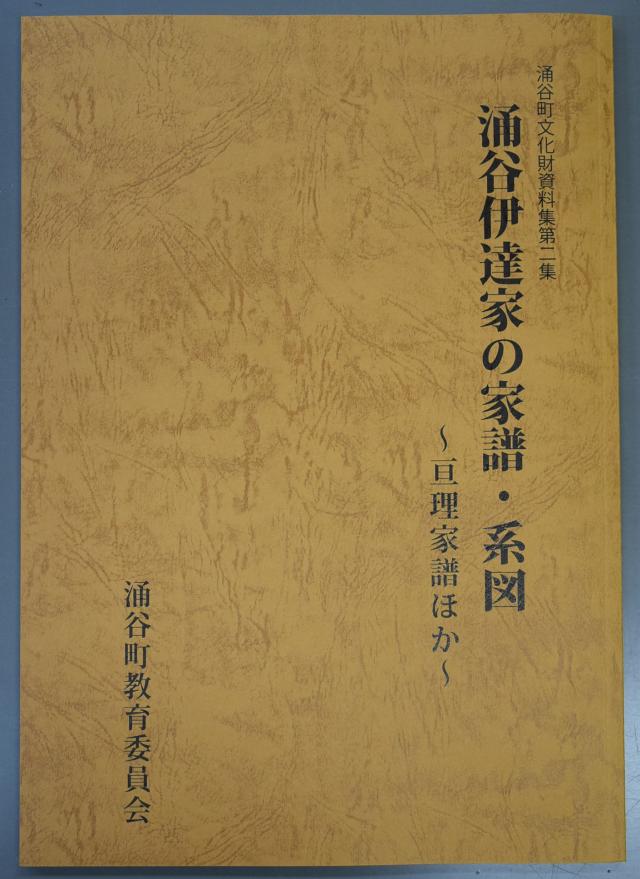 涌谷町文化財資料集第二集
涌谷伊達家の家譜・系図
～亘理家譜ほか～
涌谷町教育委員会